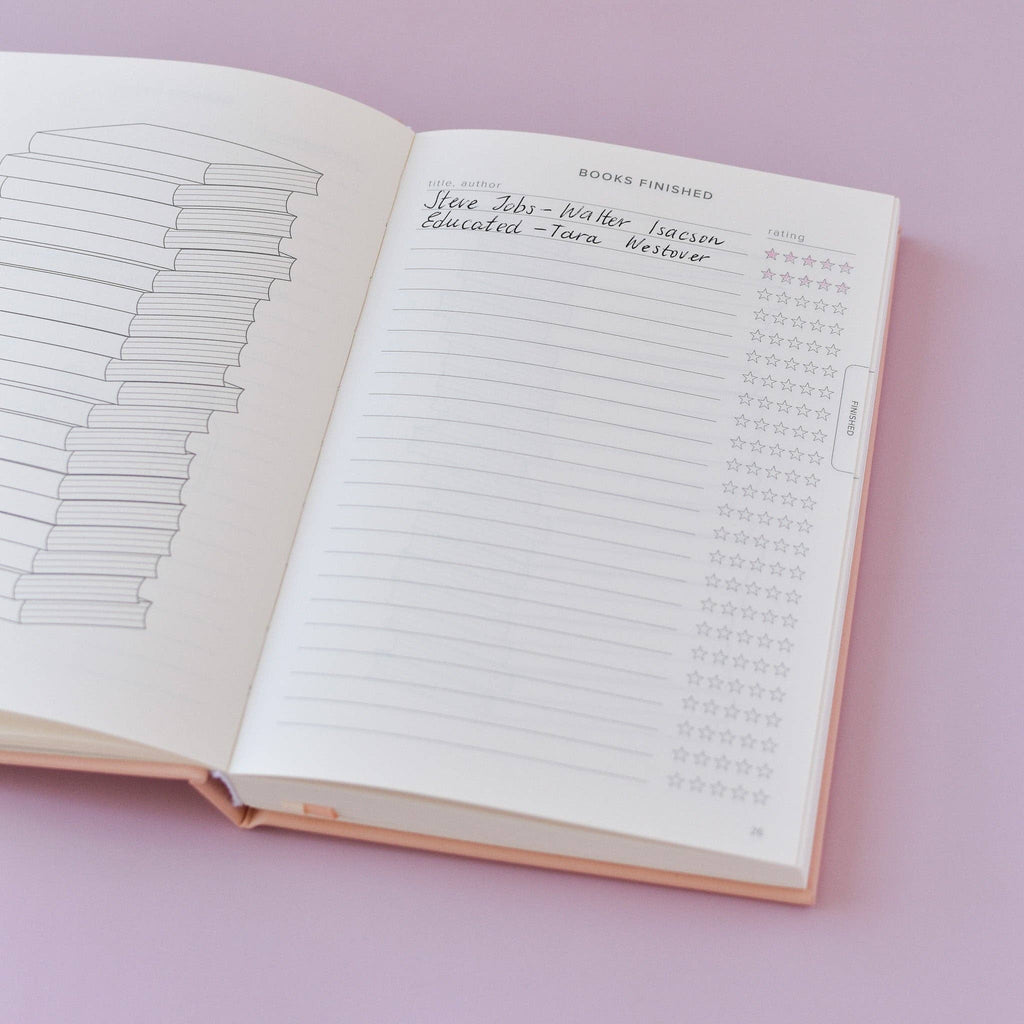 BOOKS FINISHED
title, author
rating
Steve Jobs - Walter Isacson
Educated - Tara Westover
FINISHED
26